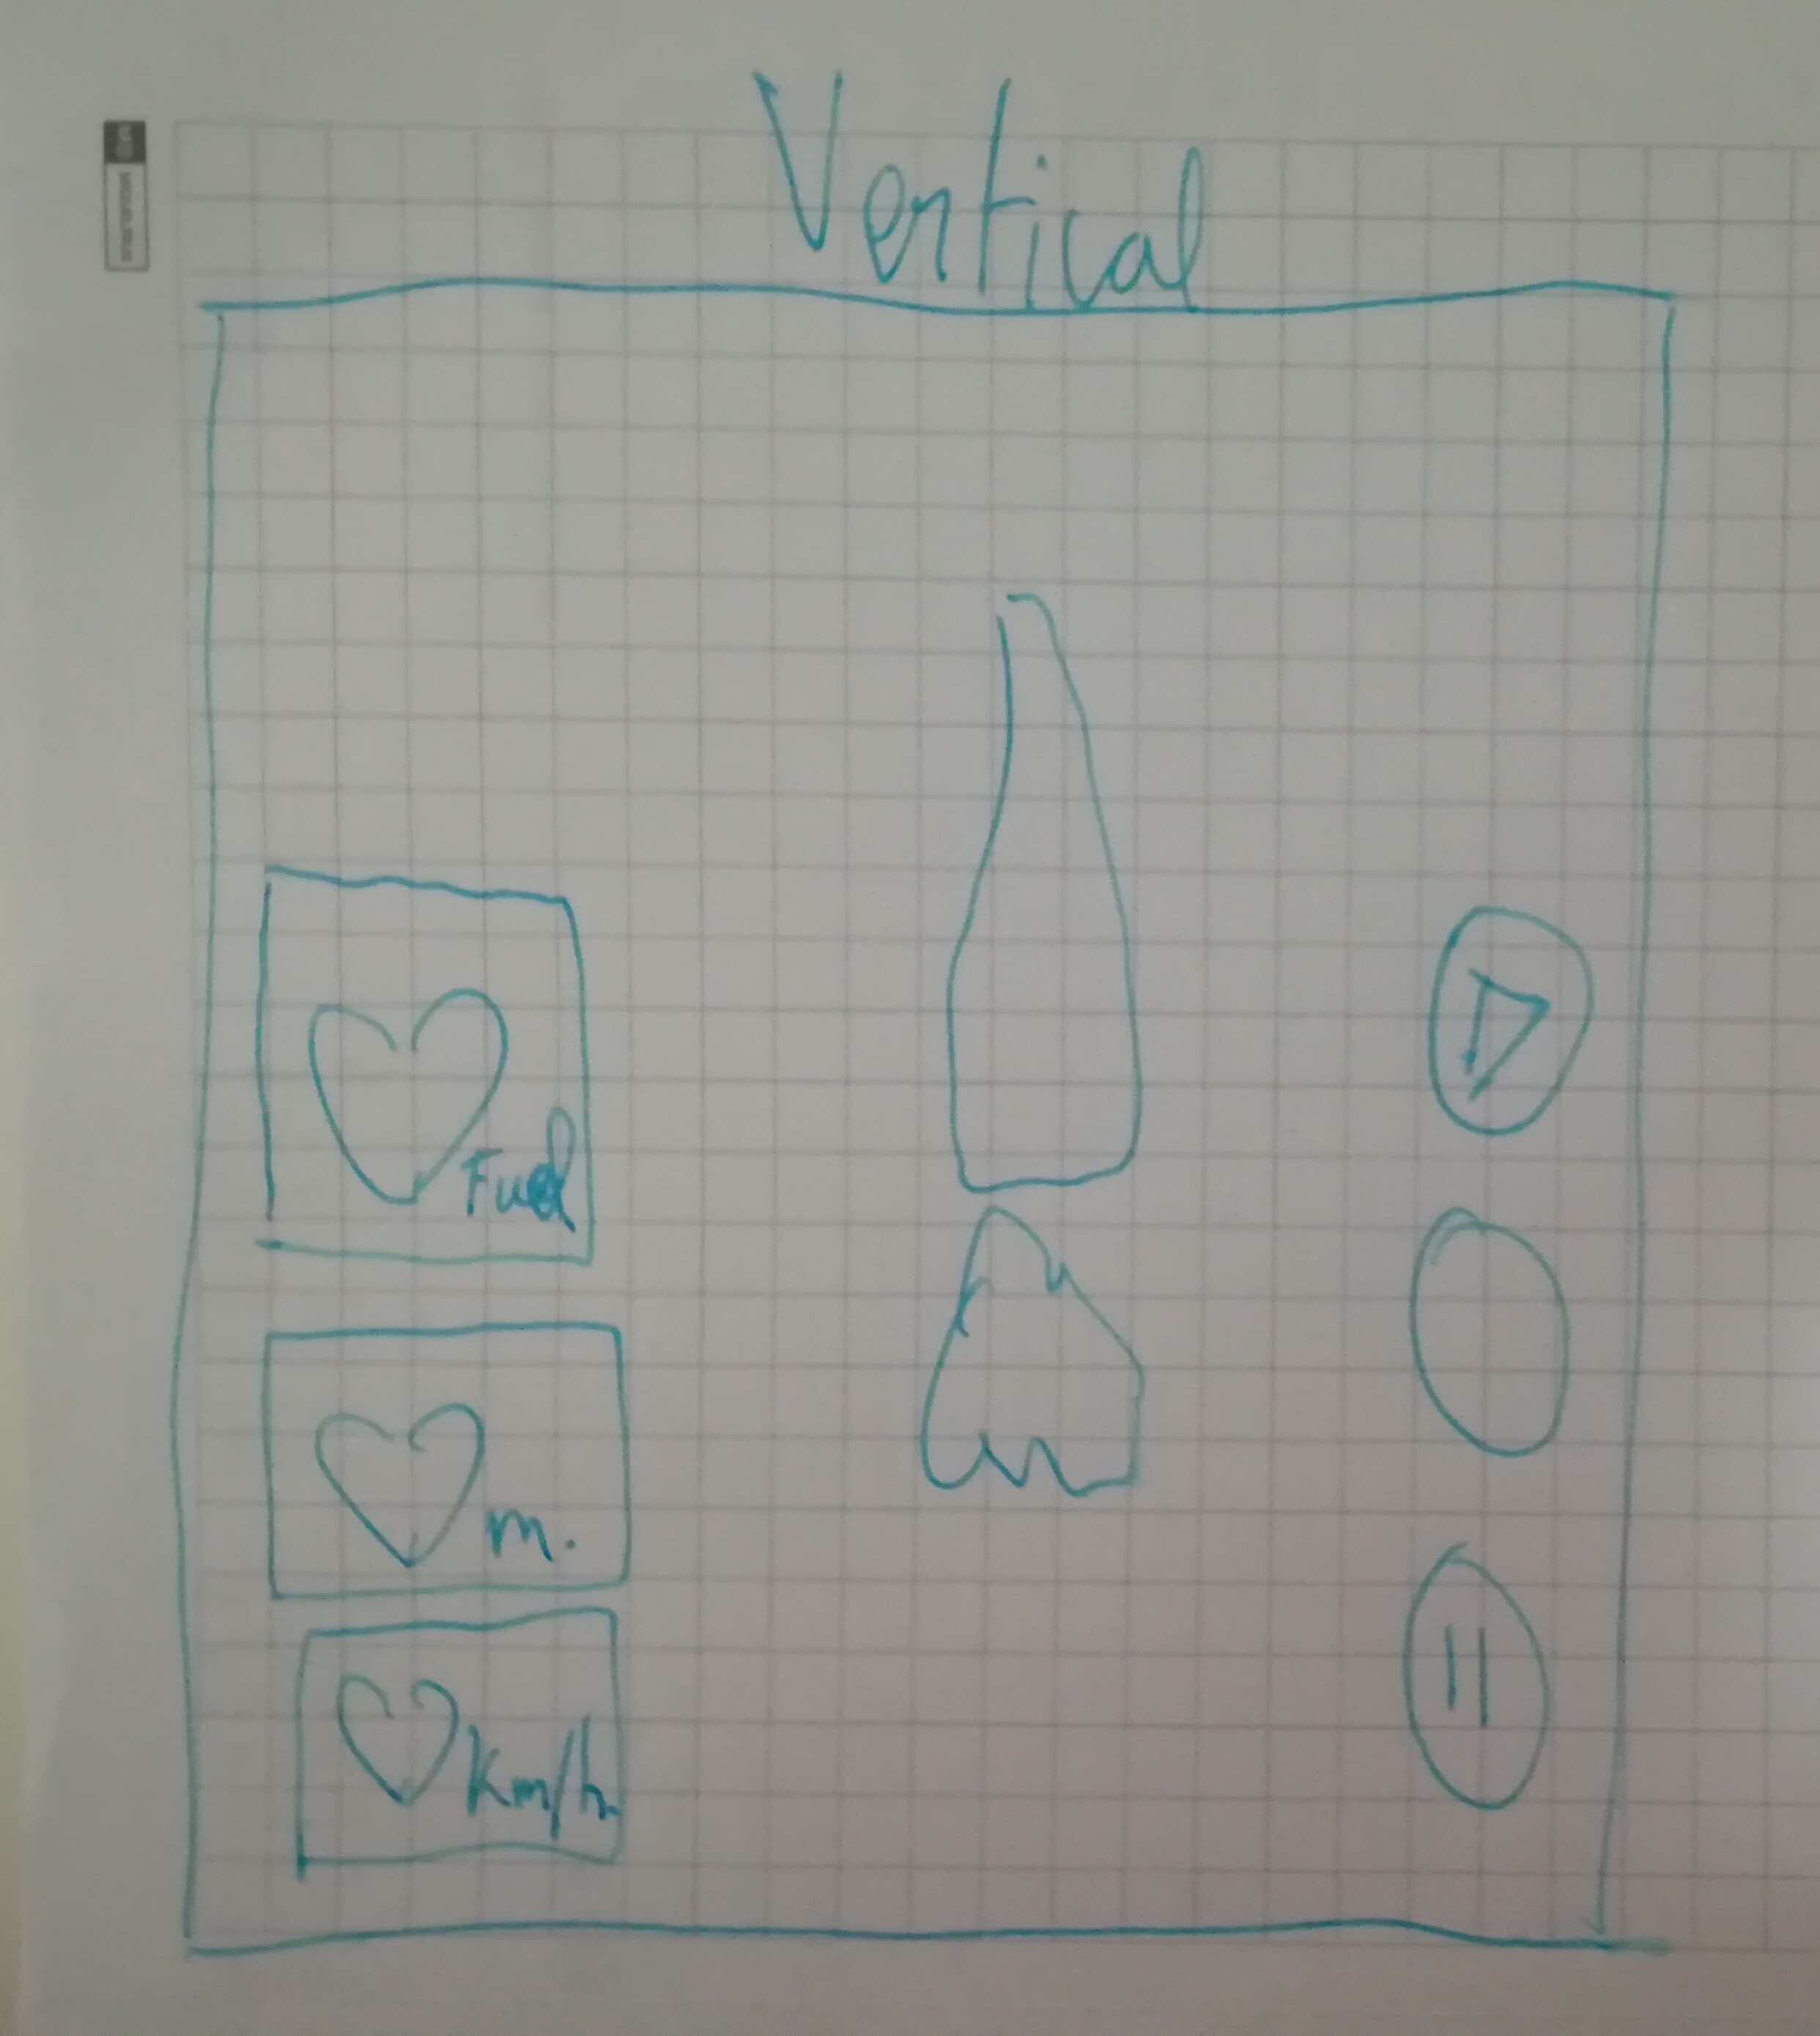 Vertical
Fuel
m.
Km/h